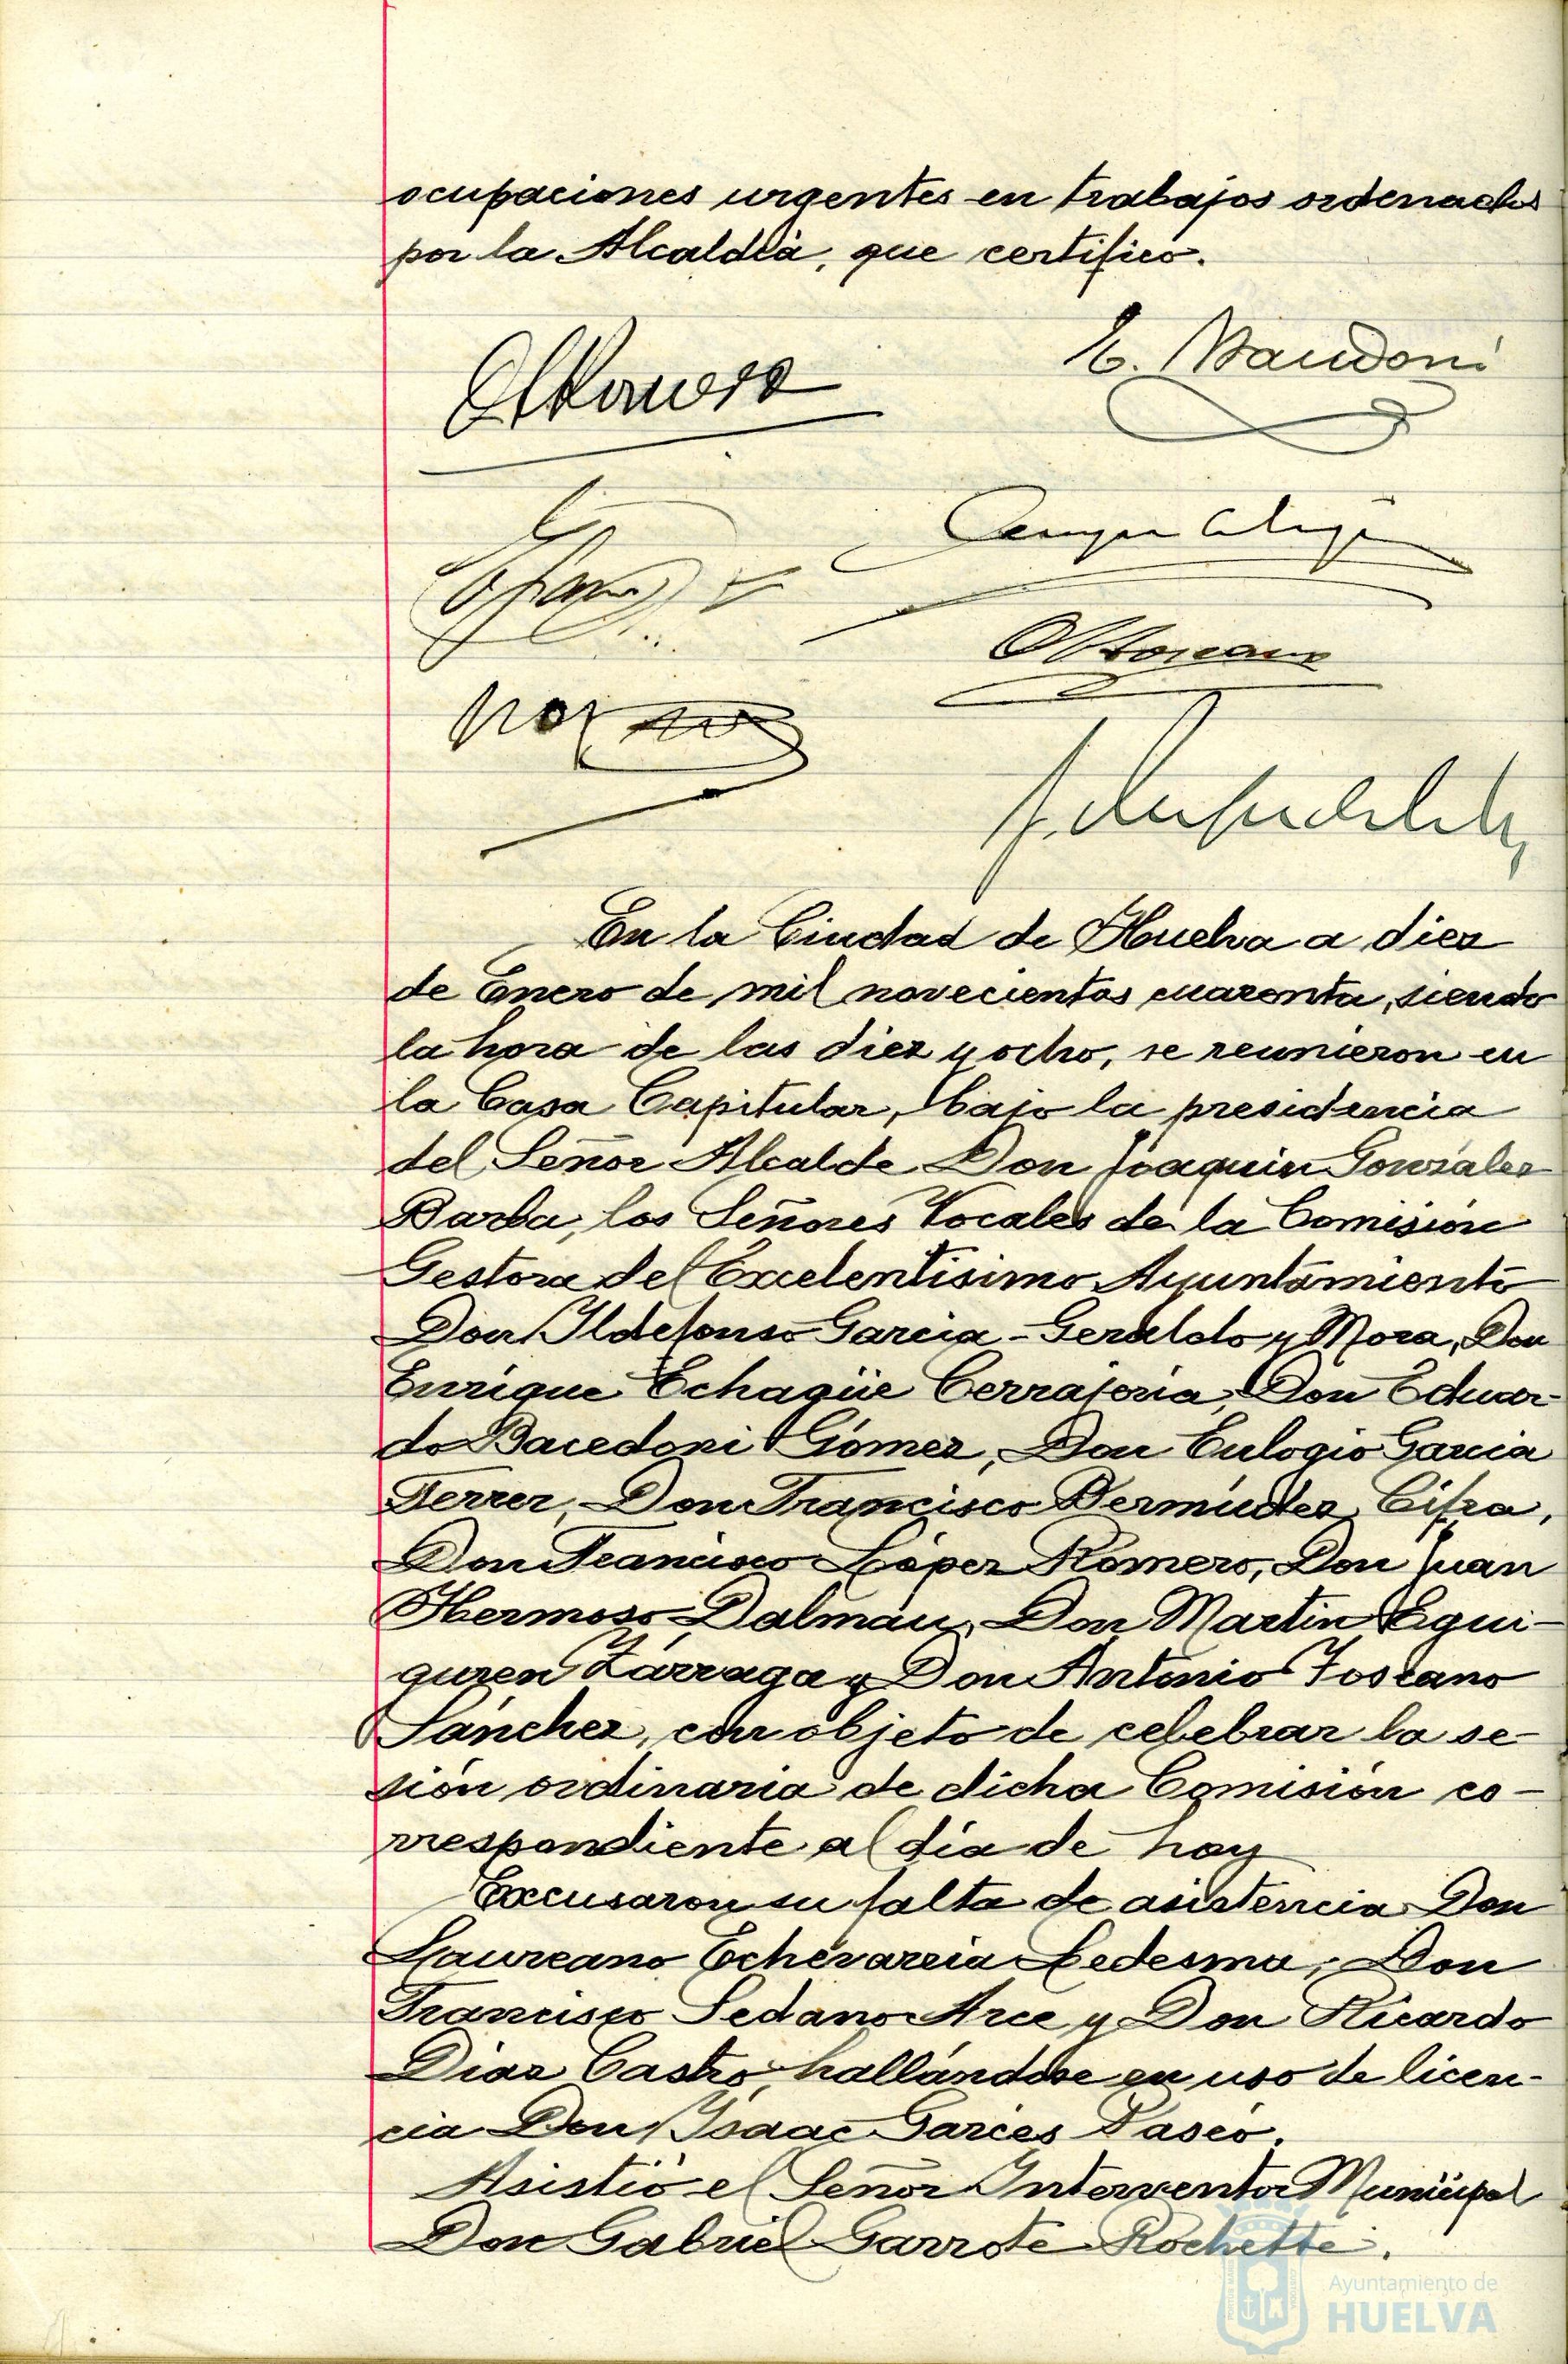 ocupaciones urgentes en trabajos ordenados
por la Alcaldía, que certifico.
En la Ciudad de Huelva a diez
de Enero de mil novecientos cuarenta, siendo
la hora de las diez y ocho, se reunieron en
la Casa Capitular, bajo la presidencia
del Señor Alcalde Don Joaquin González
Barba, los Señores Vocales de la Comisión
Gestora del Excelentísimo Ayuntamiento
Don Ildefonso Garcia-Geraldo y Mora, Don
Enrique Echagüe Cerrajeria, Don Eduar-
do Bacedoni Gómez, Don Eulogio Garcia
Ferrer, Don Francisco Bermúdez Cifra,
Don Francisco López Romero, Don Juan
Hermoso Dalmáu, Don Martin Egui-
guren Zárraga y Don Antonio Toscano
Sánchez, con objeto de celebrar la se-
sión ordinaria de dicha Comisión co-
rrespondiente al día de hoy
Excusaron su falta de asistencia Don
Laureano Echevarria Ledesma, Don
Francisco Sedano Arce y Don Ricardo
Diaz Castro, hallándose en uso de licen-
cia Don Isaac Garcés
Asistió el Señor Interventor Municipal
Don Gabriel Garrote Rochette.
Ayuntamiento de
HUELVA